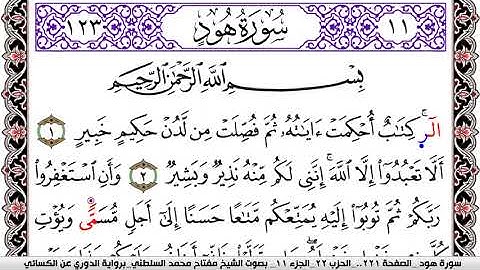 ١١ سُورَةُ هُودٍ ١٢٣
بِسْمِ اللَّهِ الرَّحْمَٰنِ الرَّحِيمِ
الٓر ۚ كِتَٰبٌ أُحْكِمَتْ ءَايَٰتُهُۥ ثُمَّ فُصِّلَتْ مِن لَّدُنْ حَكِيمٍ خَبِيرٍ ١
أَلَّا تَعْبُدُوٓا۟ إِلَّا ٱللَّهَ ۚ إِنَّنِى لَكُم مِّنْهُ نَذِيرٌ وَبَشِيرٌ ٢ وَأَنِ ٱسْتَغْفِرُوا۟
رَبَّكُمْ ثُمَّ تُوبُوٓا۟ إِلَيْهِ يُمَتِّعْكُم مَّتَٰعًا حَسَنًا إِلَىٰٓ أَجَلٍ مُّسَمًّى وَيُؤْتِ
سورة هود_ الصفحة ٢٢١.. الحزب ٢٢_ الجزء ١١_ بصوت الشيخ مفتاح محمد السلطني_ برواية الدوري عن الكسائي